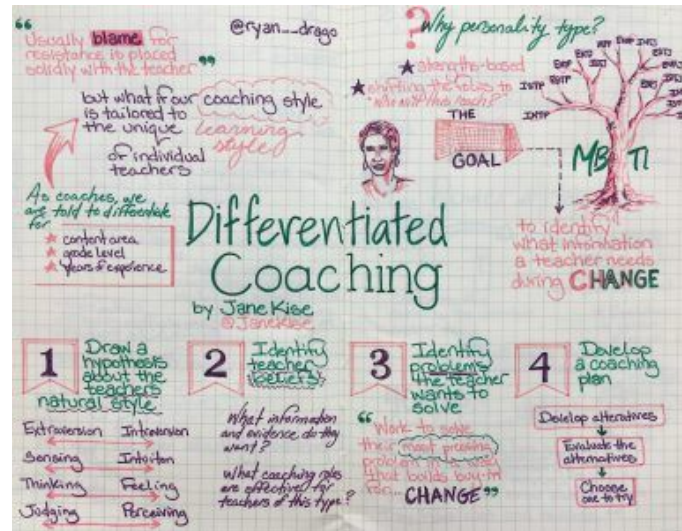 @ryan__drago
"Usually blame for
resistance is placed
solidly with the teacher"
but what if our coaching style
is tailored to
the unique learning
style
of individual
teachers
As coaches, we
are told to differentiate
for
content area
grade level
years of experience
? Why personality type?
strengths-based
shifting the focus to
"who will this reach?"
THE
GOAL
MBTI
INTP
ISTP
ESTP
ENTJ
ISTJ
ENFP
INTJ
to identify
what information
a teacher needs
during CHANGE
Differentiated
Coaching
by Jane Kise
@JaneKise
1 Draw a
hypothesis
about the
teachers
natural style
Extraversion Introversion
Sensing Intuiton
Thinking Feeling
Judging Perceiving
2 Identify
teacher
beliefs
What information
and evidence do they
want?
What coaching roles
are effective for
teachers of this type?
3 Identify
problems
the teacher
wants to
solve
"Work to solve
their most pressing
problem in a way
that builds buy-in
for... CHANGE"
4 Develop
a coaching
plan
Develop alteratives
Evaluate the
alternatives
Choose
one to try